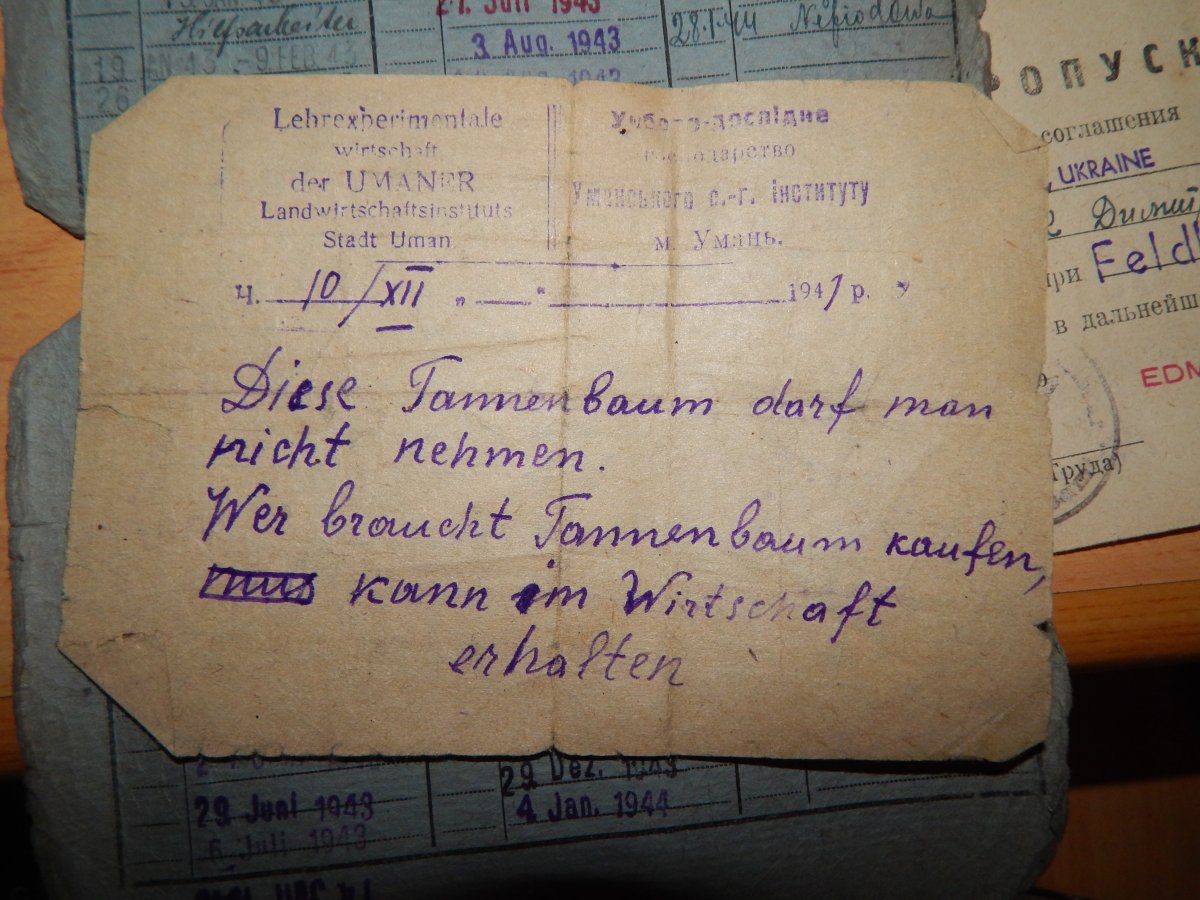 27. Juli 1943
Hilfsarbeiter
3 Aug. 1943
28.1.44
19
26
JAN 43
- 9 FEB 43
Lehrexperimentale
wirtschaft
der UMANER
Landwirtschaftsinstituts
Stadt Uman
Учбово-дослідне
господарство
Уманського с.-г. інституту
м. Умань.
Ч. 10/XII „ “ 1941 р.
Diese Tannenbaum darf man
nicht nehmen.
Wer braucht Tannenbaum kaufen,
kann im Wirtschaft
erhalten
ОПУСК
соглашения
UKRAINE
при Feld
в дальнейш
EDM
Труда)
29. Dez. 1943
29. Juni 1943
4. Jan. 1944
6. Juli 1943